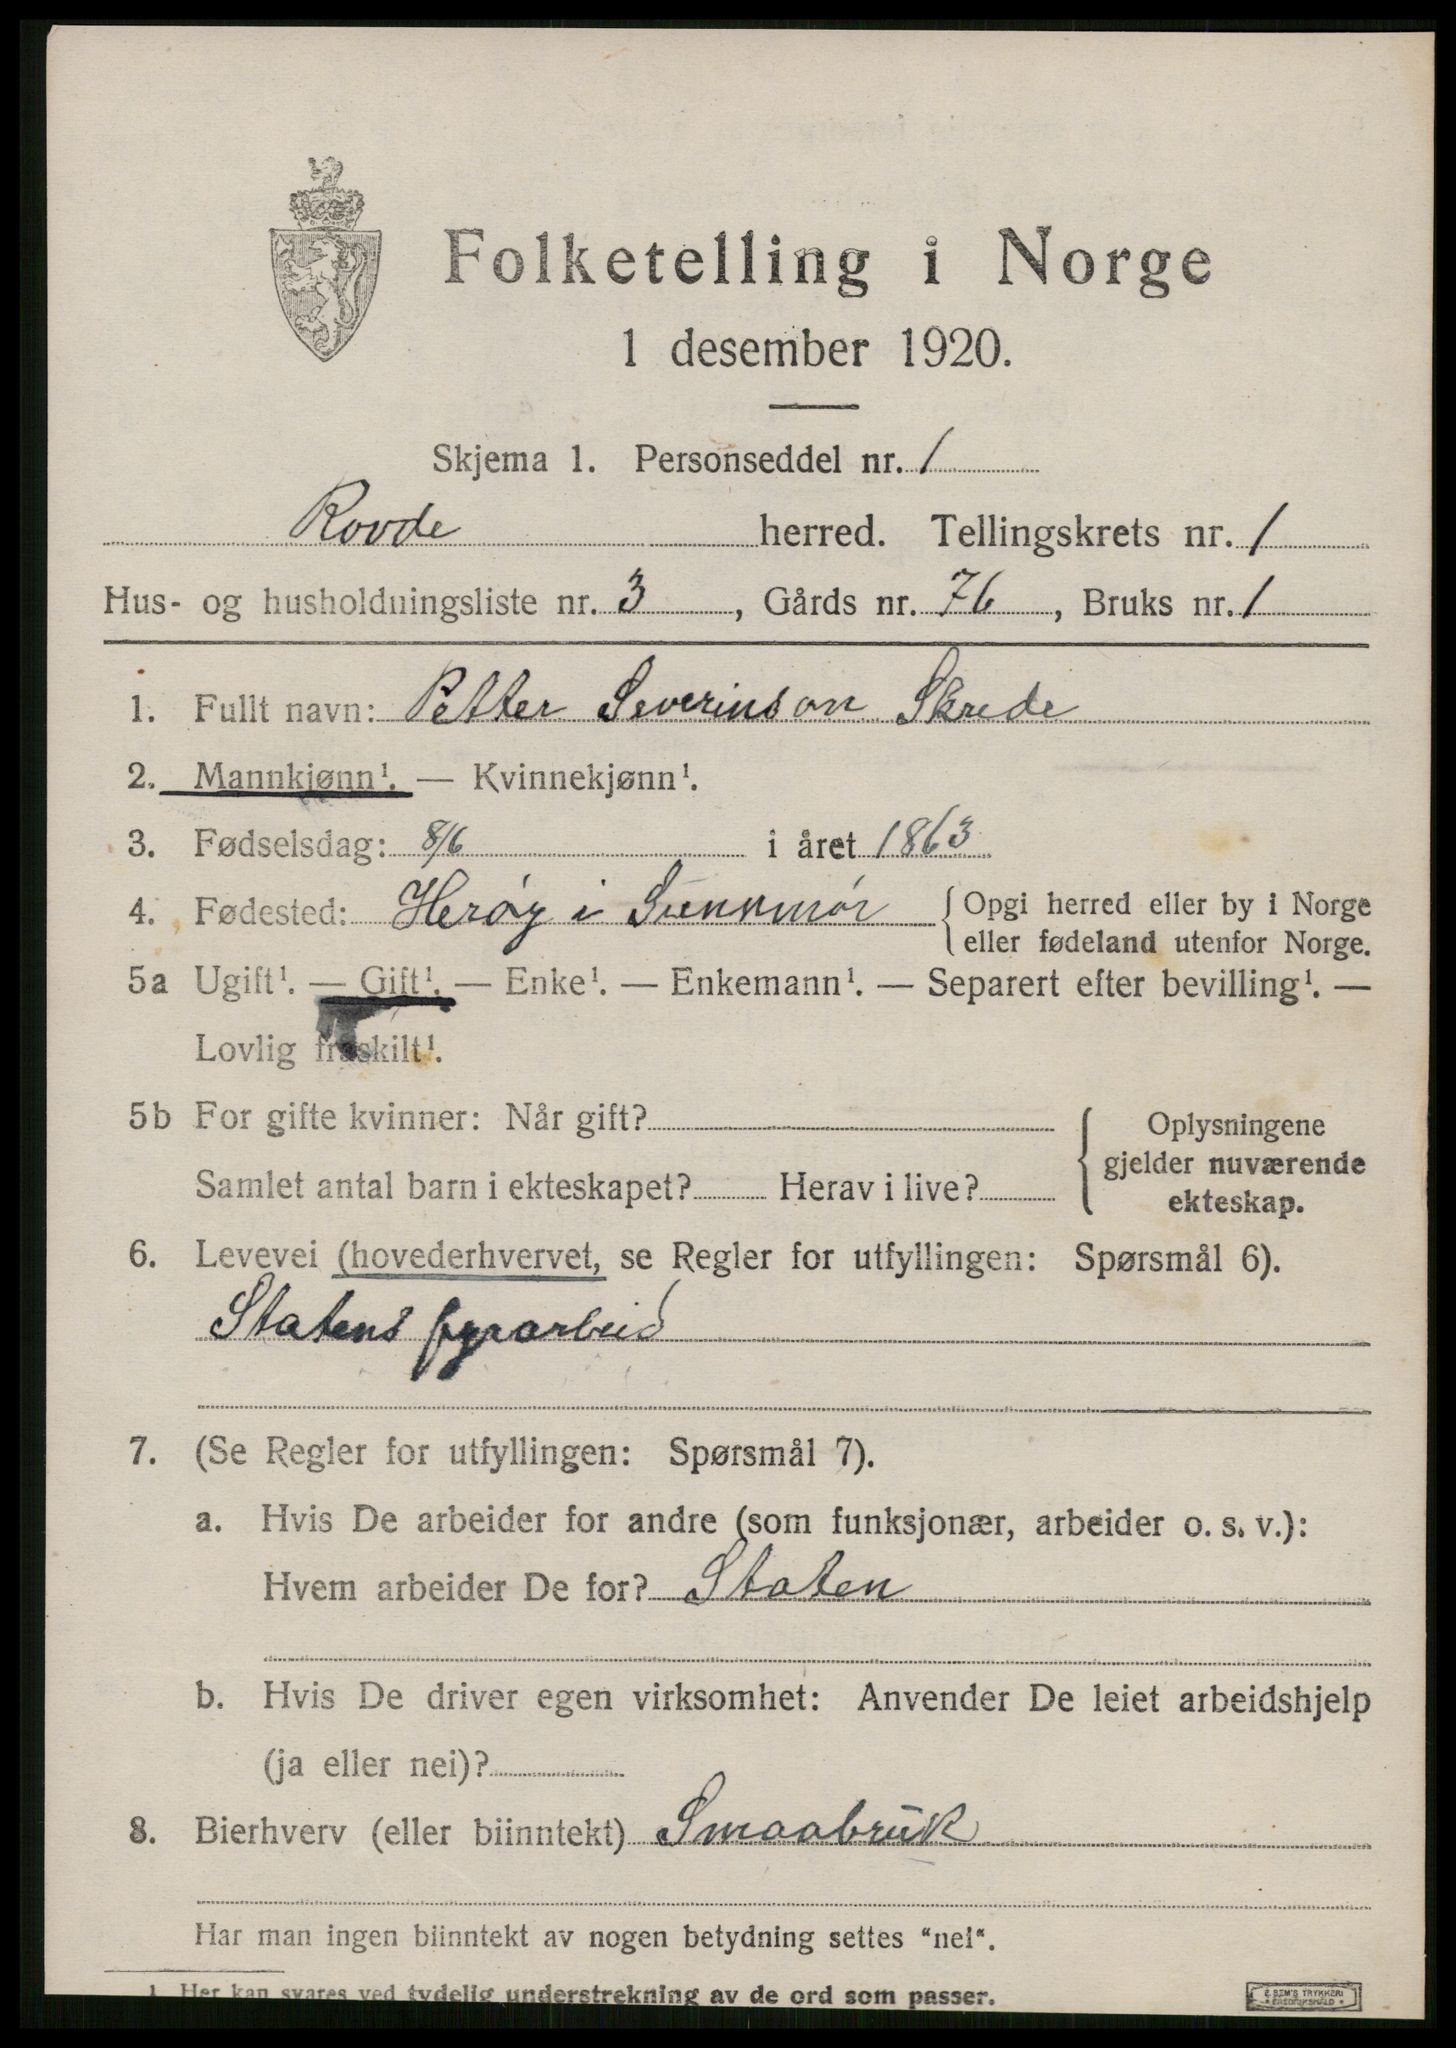 Folketelling i Norge
1 desember 1920.
Skjema 1. Personseddel nr. 1
Rovde herred. Tellingskrets nr. 1
Hus- og husholdningsliste nr. 3, Gårds nr. 76, Bruks nr. 1
1. Fullt navn: Petter Severinson Skrede
2. Mannkjønn¹. — Kvinnekjønn¹.
3. Fødselsdag: 8/6 i året 1863
4. Fødested: Herøy i Sunnmør { Opgi herred eller by i Norge
eller fødeland utenfor Norge.
5a Ugift¹. — Gift¹. — Enke¹. — Enkemann¹. — Separert efter bevilling¹. —
Lovlig fraskilt¹.
5b For gifte kvinner: Når gift?
Samlet antal barn i ekteskapet? Herav i live?
{ Oplysningene
gjelder nuværende
ekteskap.
6. Levevei (hovederhvervet, se Regler for utfyllingen: Spørsmål 6).
Statens fyrarbeid
7. (Se Regler for utfyllingen: Spørsmål 7).
a. Hvis De arbeider for andre (som funksjonær, arbeider o. s. v.):
Hvem arbeider De for? Staten
b. Hvis De driver egen virksomhet: Anvender De leiet arbeidshjelp
(ja eller nei)?
8. Bierhverv (eller biinntekt) Smaabruk
Har man ingen biinntekt av nogen betydning settes "nei".
1. Her kan svares ved tydelig understrekning av de ord som passer.
E. SEM'S TRYKKERI
FREDRIKSHALD